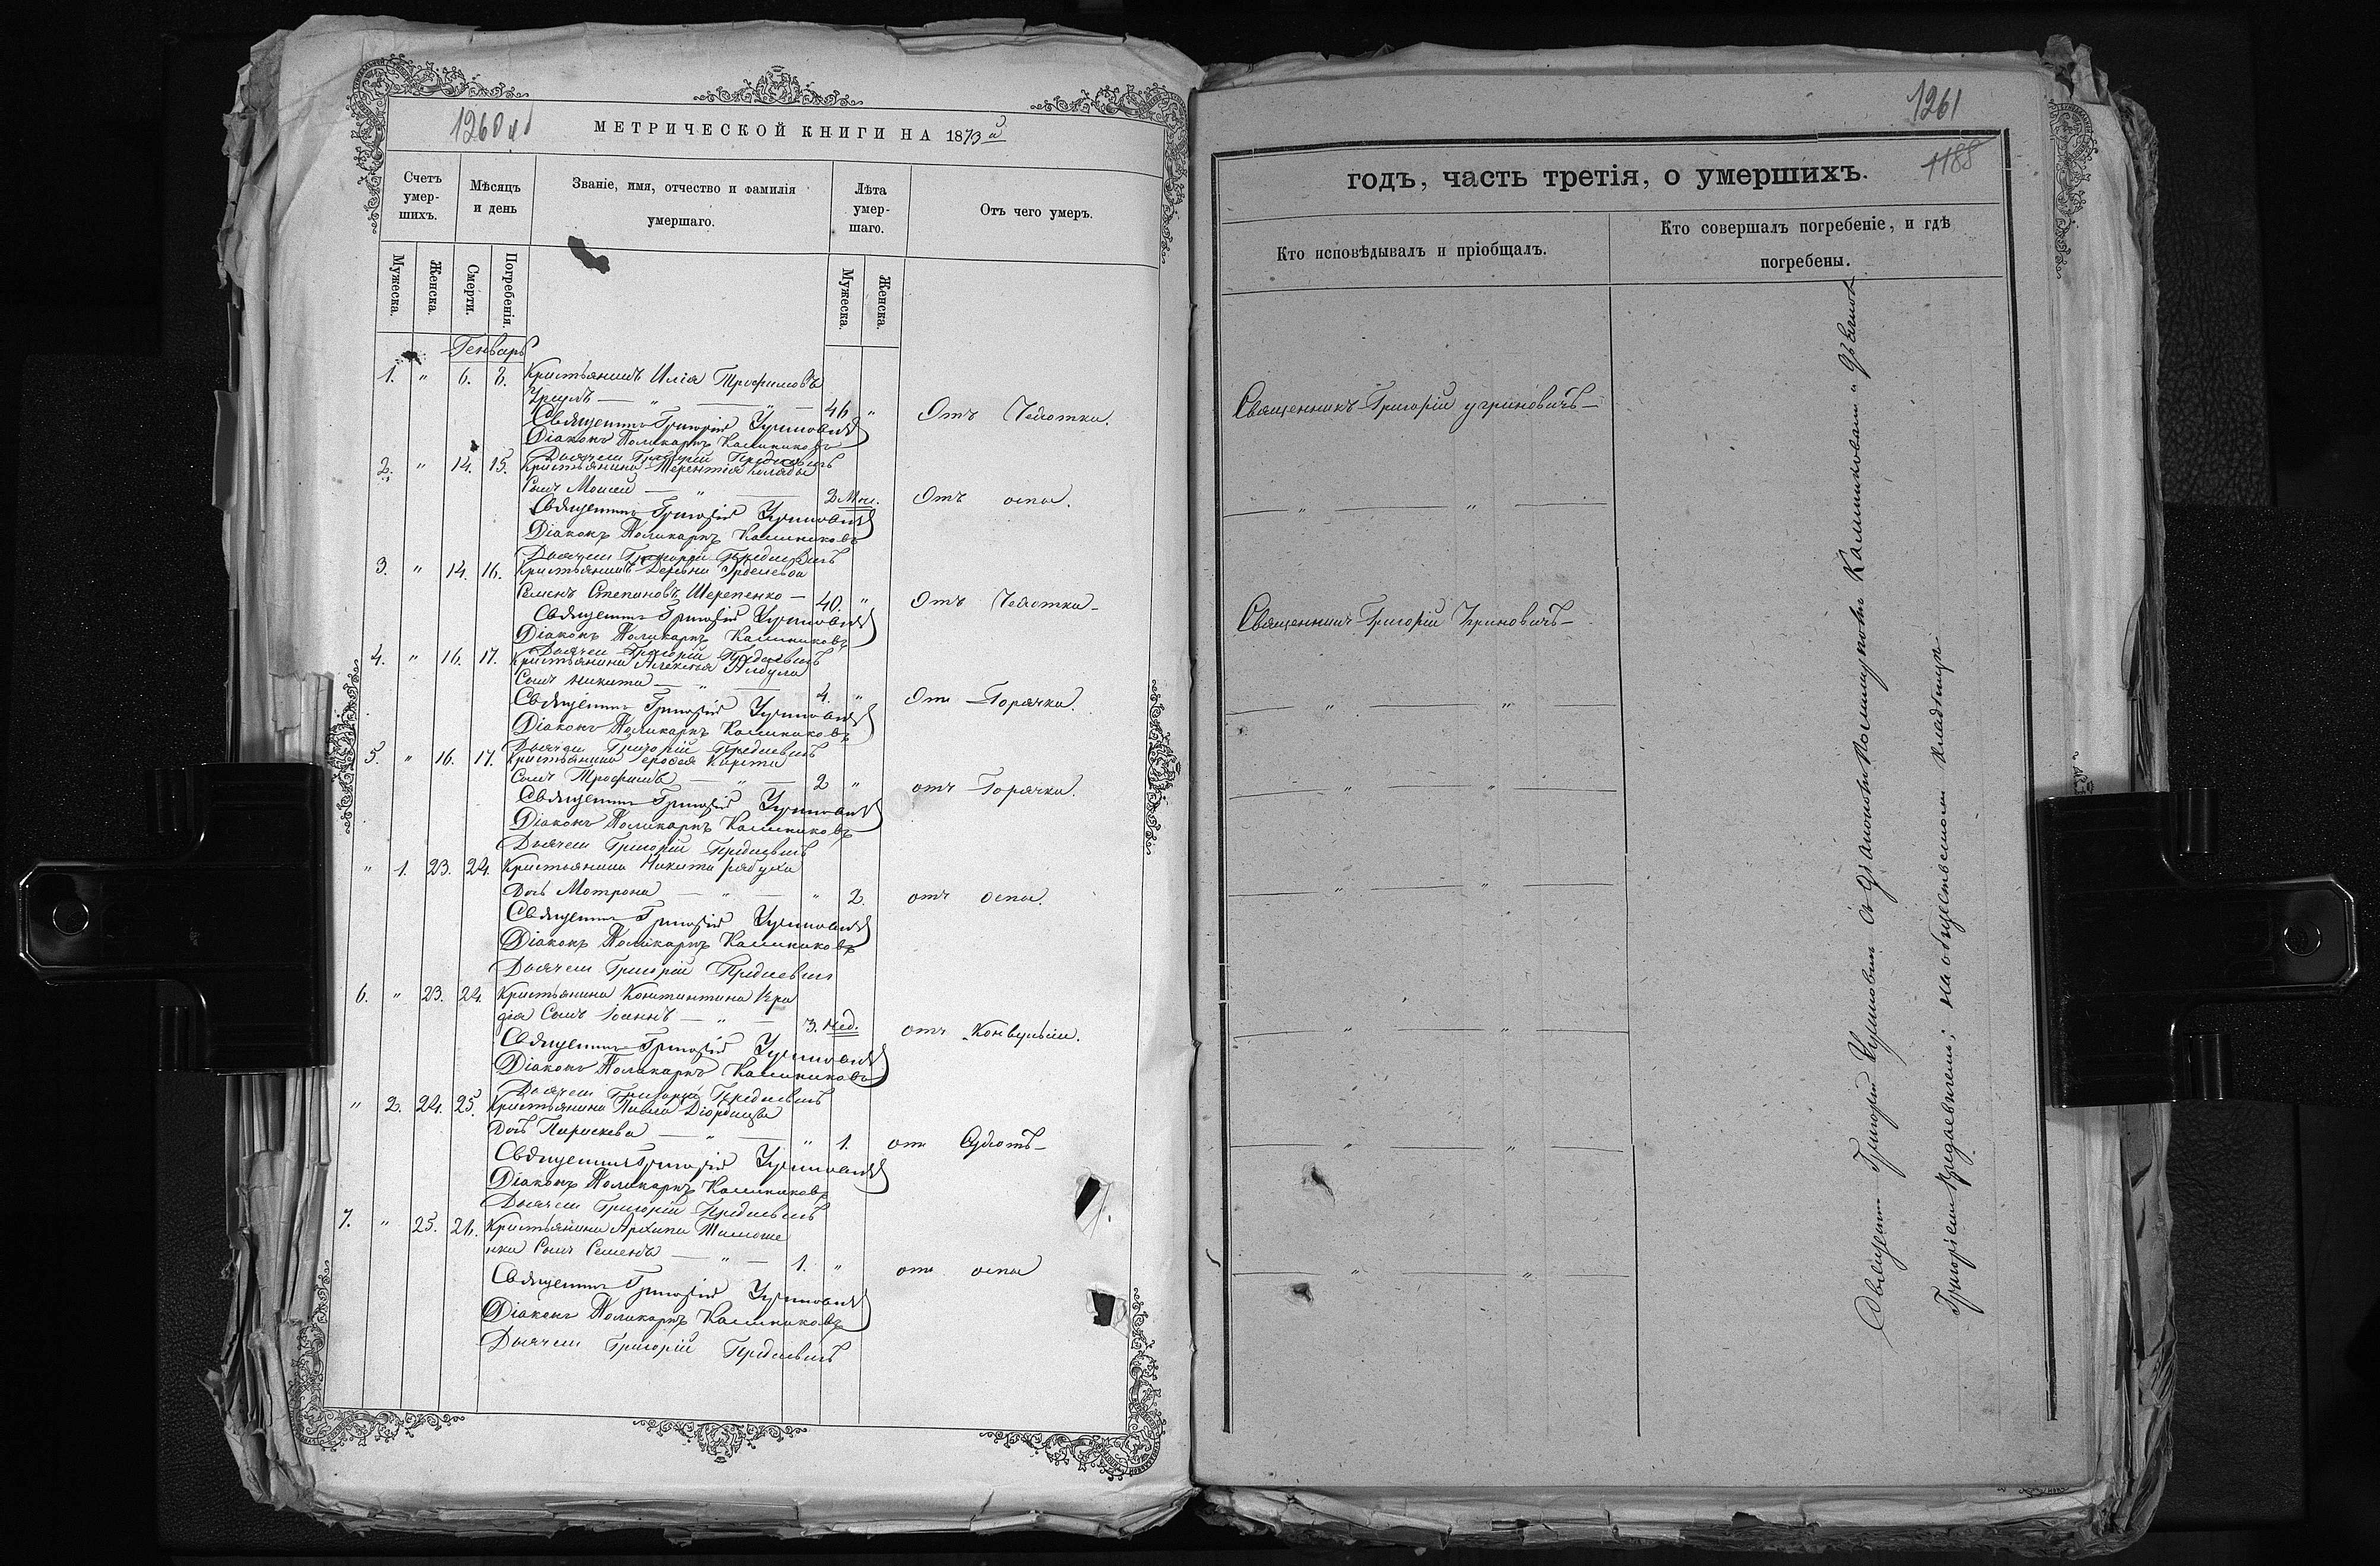 1260 об
МЕТРИЧЕСКОЙ КНИГИ НА 1873й
Счетъ умер-шихъ.
Мѣсяцъ и день
Званіе, имя, отчество и фамилія умершаго.
Лѣта умер-шаго.
Отъ чего умеръ.
Мужеска.
Женска.
Смерти.
Погребенія.
Мужеска.
Женска.
Генварь
1. " 6. 8. Крестьянинъ Илія Трофимовъ
— " — " — 46 " Отъ Чахотки.
Священникъ Григорій Угриновичъ
Діаконъ Поликарпъ Калинниковъ
Дьячекъ Григорій
2. " 14. 15. Крестьянина Терентія
Сынъ Моисей — " — 2 Мес. Отъ оспы.
Священникъ Григорій Угриновичъ
Діаконъ Поликарпъ Калинниковъ
Дьячекъ Григорій
3. " 14. 16. Крестьянинъ Деревни
Семенъ Степановъ Шерепенко — 40. " Отъ Чахотки —
Священникъ Григорій Угриновичъ
Діаконъ Поликарпъ Калинниковъ
Дьячекъ Григорій
4. " 16. 17. Крестьянина Алексѣя
Сынъ Никита — " — 4. " Отъ Горячки.
Священникъ Григорій Угриновичъ
Діаконъ Поликарпъ Калинниковъ
Дьячекъ Григорій
5. " 16. 17. Крестьянина
Сынъ Трофимъ — " — 2 " отъ Горячки.
Священникъ Григорій Угриновичъ
Діаконъ Поликарпъ Калинниковъ
Дьячекъ Григорій
" 1. 23. 24. Крестьянина Никиты Рябухи
Дочь Мотрона — " — " 2. отъ оспы.
Священникъ Григорій Угриновичъ
Діаконъ Поликарпъ Калинниковъ
Дьячекъ Григорій
6. " 23. 24. Крестьянина Константина
Сынъ Іоаннъ — " — 3. нед. отъ Конвульсіи.
Священникъ Григорій Угриновичъ
Діаконъ Поликарпъ Калинниковъ
Дьячекъ Григорій
" 2. 24. 25. Крестьянина Павла
Дочь Параскева — " — " 1. отъ
Священникъ Григорій Угриновичъ
Діаконъ Поликарпъ Калинниковъ
Дьячекъ Григорій
7. " 25. Крестьянина Архипа Тимоше
нка Сынъ Семенъ — " — 1. " отъ оспы
Священникъ Григорій Угриновичъ
Діаконъ Поликарпъ Калинниковъ
Дьячекъ Григорій
1261
1188
годъ, часть третія, о умершихъ.
Кто исповѣдывалъ и пріобщалъ.
Кто совершалъ погребеніе, и гдѣ погребены.
Священникъ Григорій Угриновичъ —
— " — " —
Священникъ Григорій Угриновичъ —
— " — " —
— " — " —
— " — " —
— " — " —
— " — " —
— " — " —
Священникъ Григорій Угриновичъ съ діакономъ Поликарпомъ Калинниковымъ и дьячкомъ
Григоріемъ на общественномъ кладбищѣ